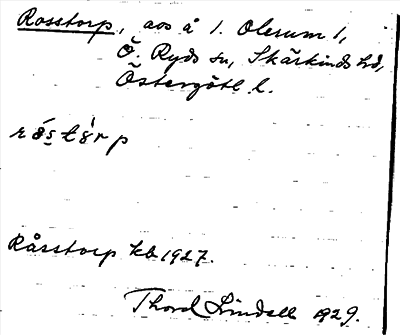 Rosstorp, aos å 1. Olerum 1,
Ö. Ryds sn, Skärkinds hd,
Östergötl l.
Råsstorp kb 1927.
Thord Lindell 1929.